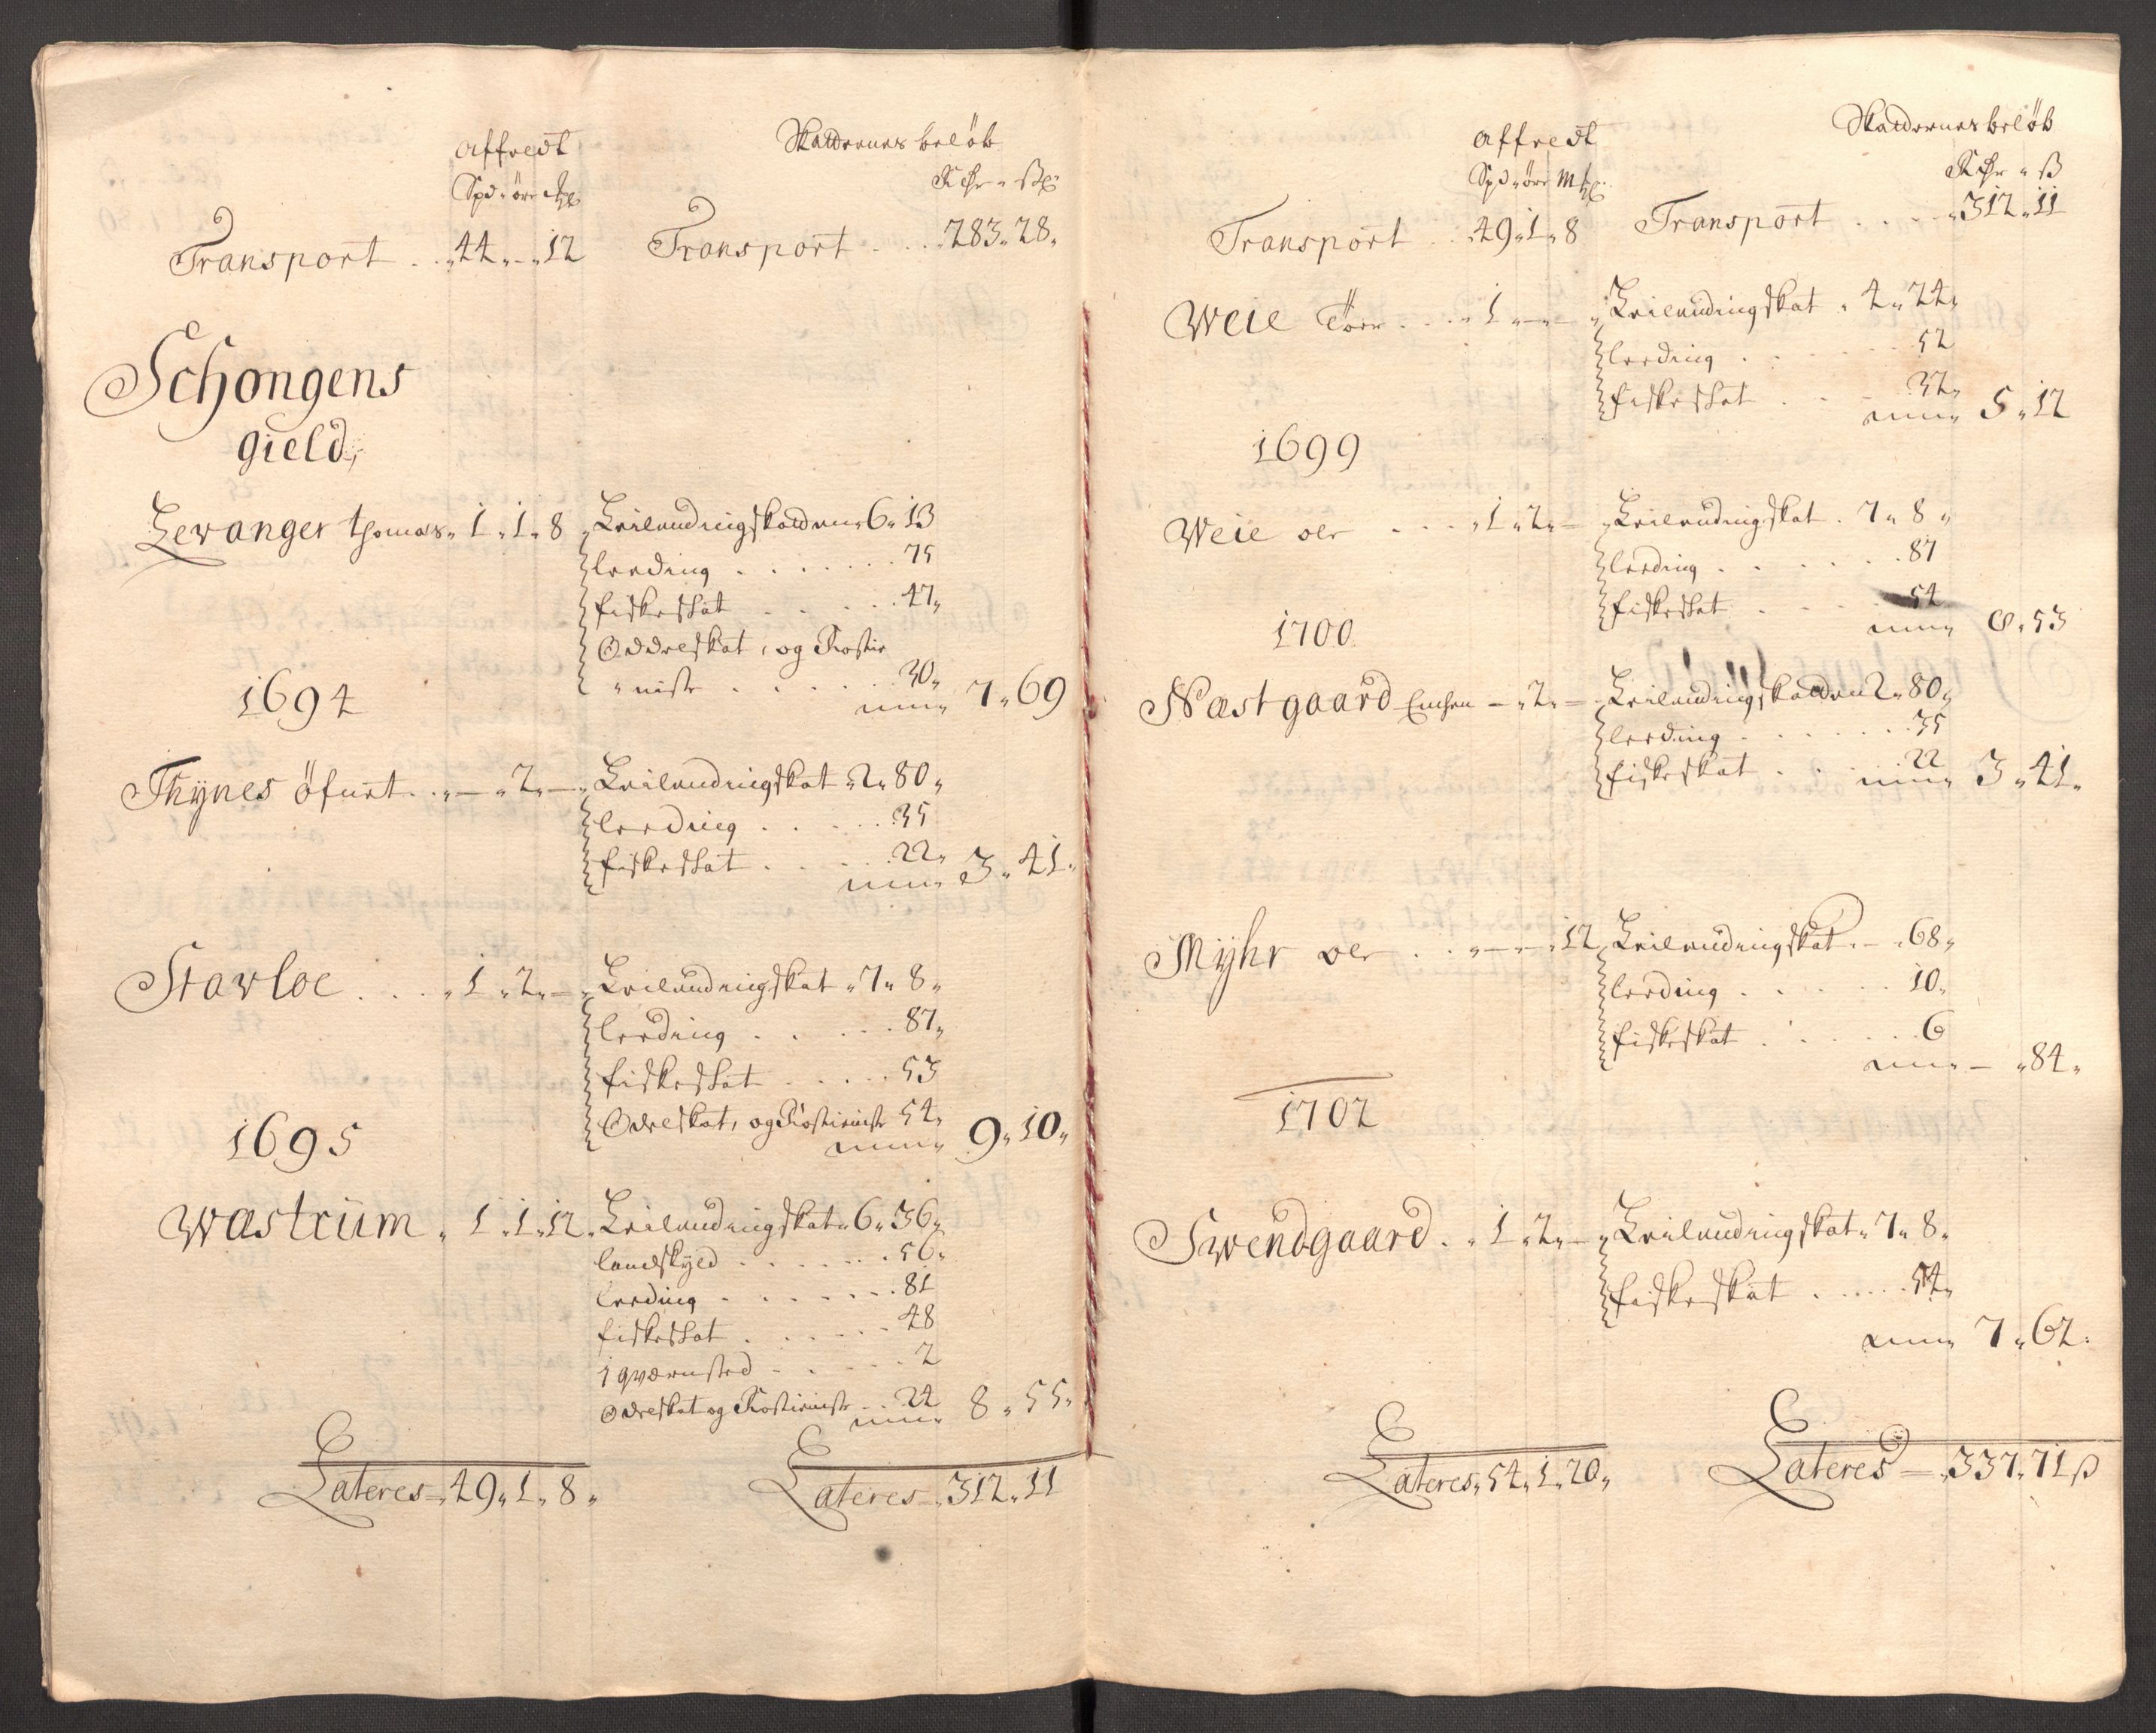 Affredt
Skatternes beløb
Spd " øre
Rdr " ß
Transport . . " 44 " — " 12
Transport . . . 283 " 28 "
Schongens
gield,
Levanger thomas " 1 " 1 " 8
Leilendingskatten " 6 " 13
leeding . . . . . . . 75
fiskeskat . . . . . 47 "
Oddeskat, og Rostie
" niste . . . . . . 30 "
1694
7 " 69
Thÿnes öfuet . . " — " 2 " —
Leilendingskat " 2 " 80 "
leeding . . . . . 35
fiskeskat . . . . . 22 "
3 " 41 "
Stavloe . . . . " 1 " 2 " —
Leilendingskat " 7 " 8 "
leeding . . . . . 87 "
fiskeskat . . . . . 53
Oddeskat, og Rostieniste 54 "
1695
9 " 10 "
Wæstrum " 1 " 1 " 12
Leilendingskat " 6 " 36 "
landskyld . . . . . . . 56 "
leeding . . . . . . . 81
fiskeskat . . . . . . 48
1 qværnsted . . . . . 2
Oddeskat og Rostieniste . . 24
8 " 55 "
Lateres " 49 " 1 " 8 "
Lateres " 312 " 11
Affredt
Skatternes beløb
Spd " øre M
Rdr " ß
Transport . . 49 " 1 " 8
Transport . . . . " 312 " 11
Weie Toer . . . " 1 " — " —
Leilendingskat " 4 " 74 "
leeding . . . . . . . 52
fiskeskat . . . 32 "
5 " 12
1699
Weie ole . . . . " 1 " 2 " —
Leilendingskat . 7 " 8 "
leeding . . . . . . 87
fiskeskat . . . . 54
1700
8 " 53
Næstgaard — " 2 " —
Leilendingskatten 2 " 80 "
leeding . . . . . . . 35
fiskeskat . . . . 22
3 " 41 "
Mÿhr ole . . " — " — " 12
Leilendingskat . — " 68 "
leeding . . . . . . 10 "
fiskeskat . . . . . . 6
— " 84 "
1702
Swendgaard . " 1 " 2 " —
Leilendingskat " 7 " 8 "
fiskeskat . . . . . . 54 "
7 " 62 "
Lateres " 54 " 1 " 20 "
Lateres — " 337 " 71 ß